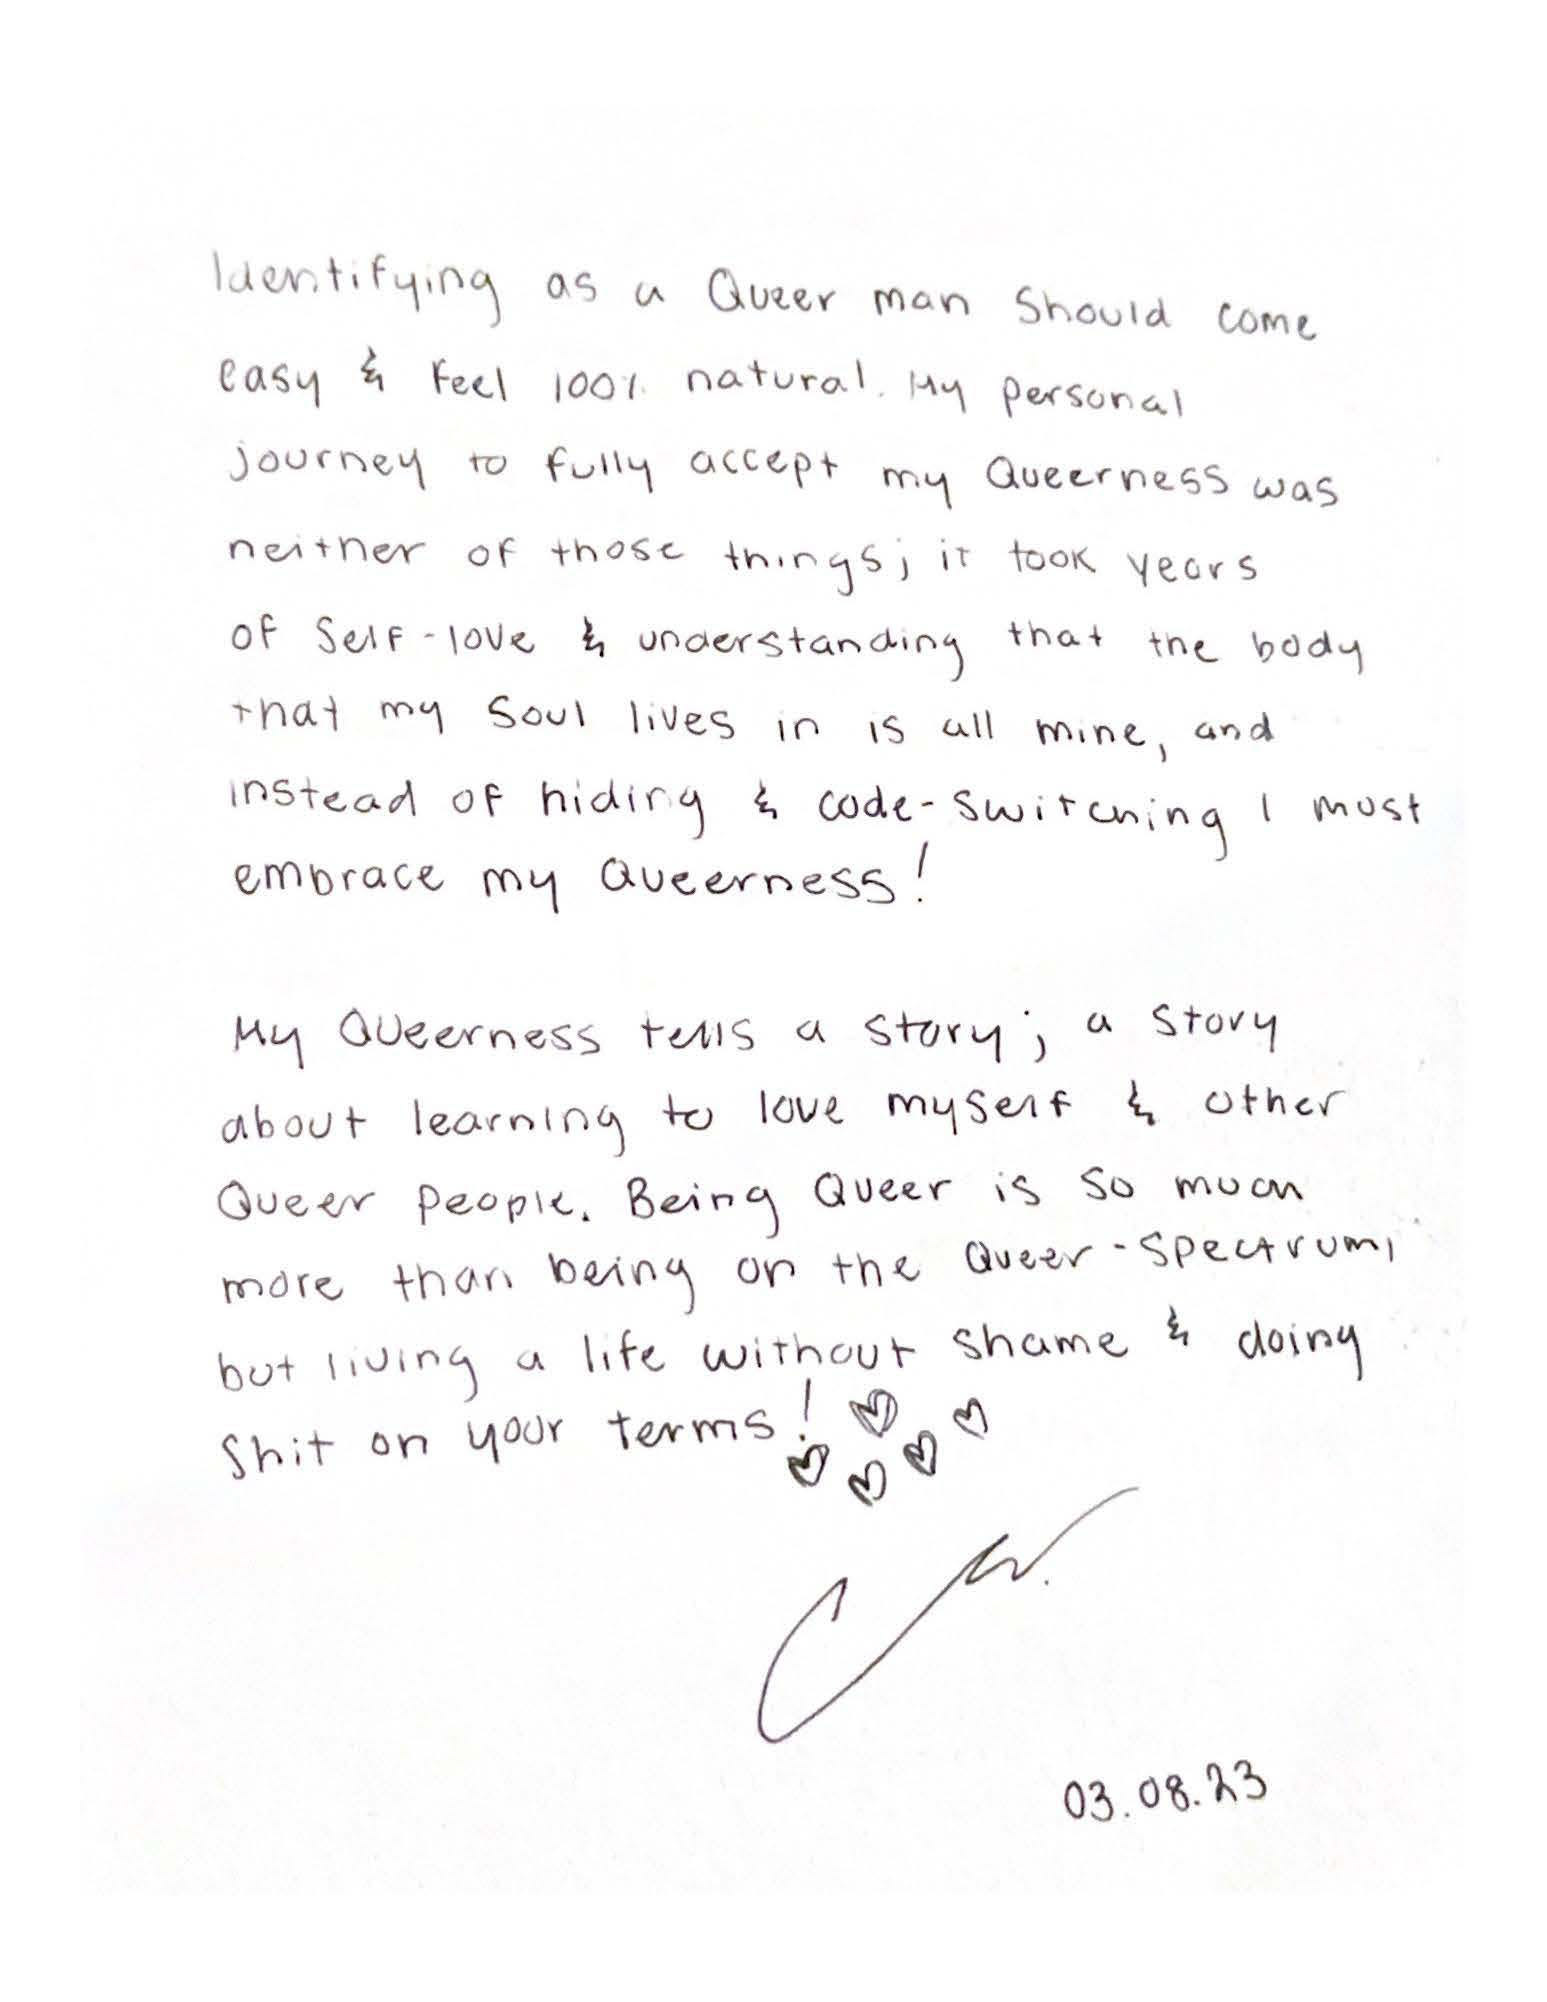 Identifying as a Queer man should come
easy & feel 100% natural. My personal
journey to fully accept my Queerness was
neither of those things; it took years
of self-love & understanding that the body
that my soul lives in is all mine, and
instead of hiding & code-switching I must
embrace my Queerness!
My Queerness tells a story; a story
about learning to love myself & other
Queer people. Being Queer is so much
more than being on the Queer-spectrum,
but living a life without shame & doing
shit on your terms!
03.08.23